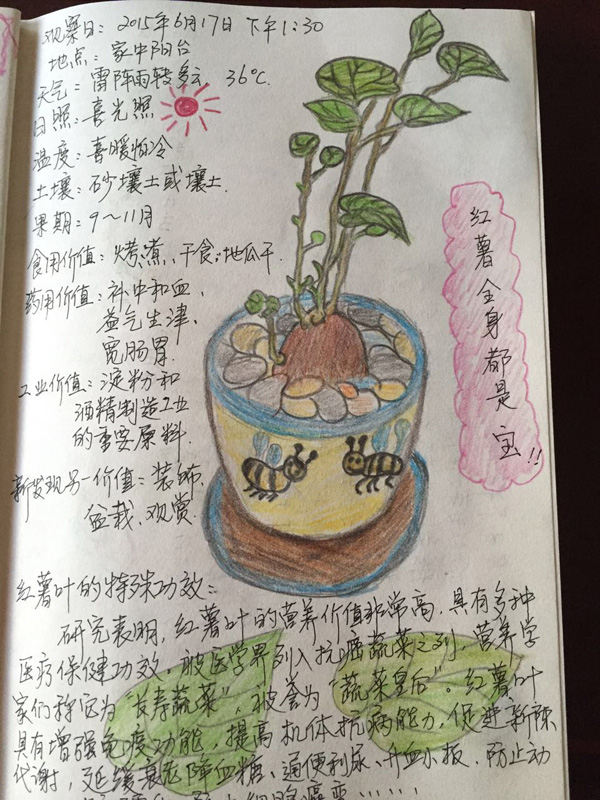 观察日：2015年6月17日 下午1:30
地点：家中阳台
天气：雷阵雨转多云 36℃
日照：喜光照
温度：喜暖怕冷
土壤：砂壤土或壤土.
果期：9～11月
食用价值：烤.煮、干食:地瓜干.
药用价值：补中和血、
益气生津、
宽肠胃.
工业价值：淀粉和
酒精制造工业
的重要原料.
新发现另一价值：装饰.
盆栽、观赏.
红薯全身都是宝!!
红薯叶的特殊功效：
研究表明，红薯叶的营养价值非常高，具有多种
医疗保健功效，被医学界列入抗癌蔬菜之列，营养学
家们称它为“长寿蔬菜”，被誉为“蔬菜皇后”。红薯叶
具有增强免疫功能，提高机体抗病能力，促进新陈
代谢，延缓衰老.降血糖、通便利尿、升血小板、防止动